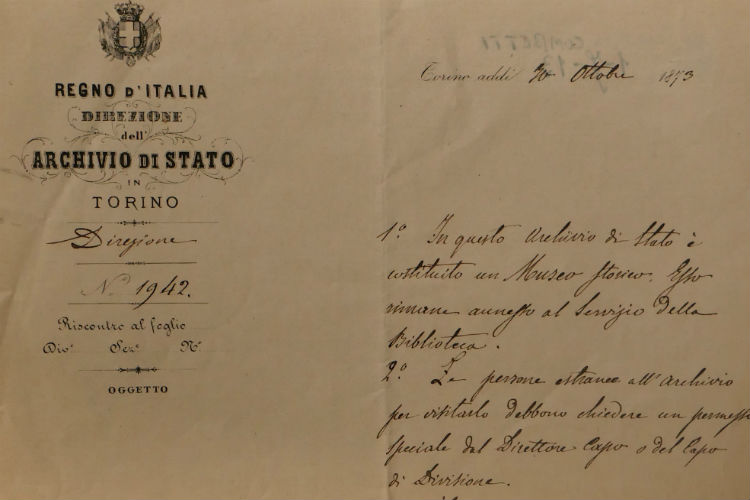 REGNO D'ITALIA
DIREZIONE
dell'
ARCHIVIO DI STATO
IN
TORINO
Direzione
N.° 1942.
Riscontro al foglio
Div.e Sez.e N.°
OGGETTO
Torino addì 30 Ottobre 1873
1° In questo Archivio di Stato è
costituito un Museo storico. Esso
rimane annesso al Servizio della
Biblioteca.
2° Le persone estranee all'Archivio
per visitarlo debbono chiedere un permesso
speciale dal Direttore Capo o del Capo
di Divisione.